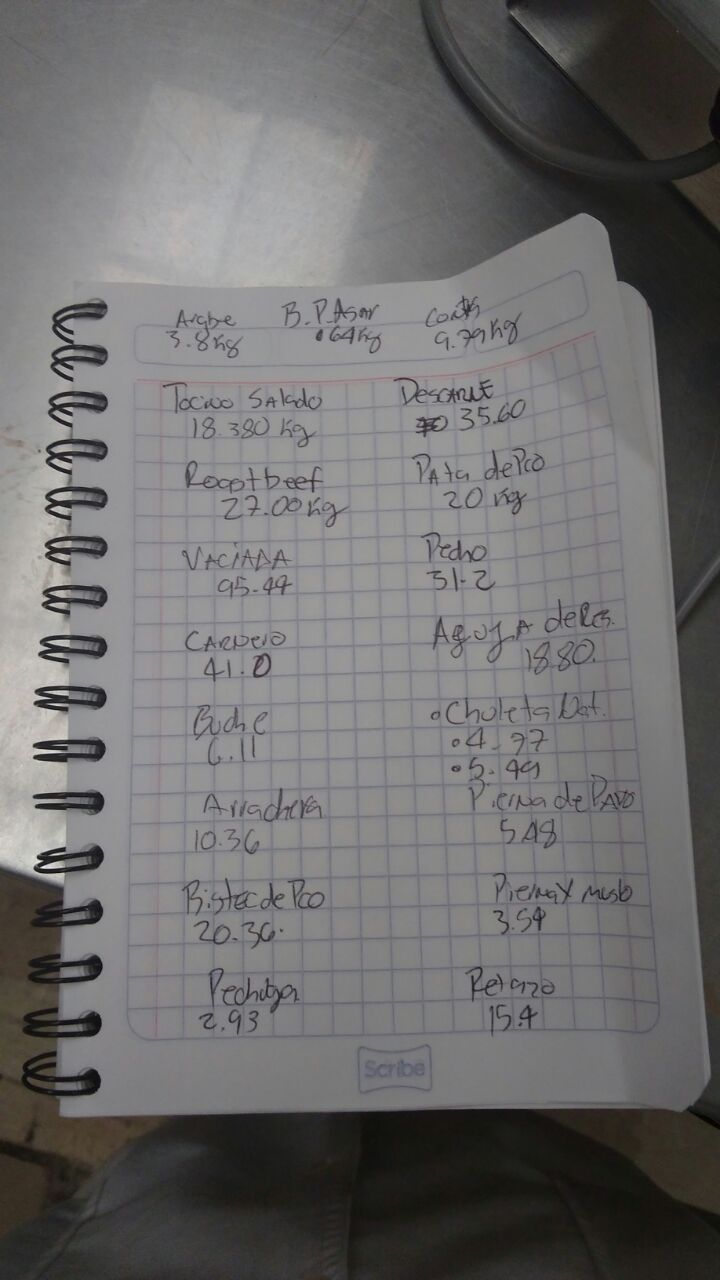 Arabe B. P. Asar
3.8 kg .64 kg 9.79 kg
Tocino Salado
18.380 kg
Roastbeef
27.00 kg
VACIADA
95.44
CARNERO
41.0
Buche
6.11
Arrachera
10.36
Bistec de Pco
20.36.
Pechuga
2.93
DESCARNE
35.60
PAta de Pco
20 kg
Pecho
31.2
AgujA de Res.
18.80.
Chuleta Nat.
4.97
5.49
Pierna de PAVO
5.48
Pierna Y muslo
3.54
Retazo
15.4
Scribe